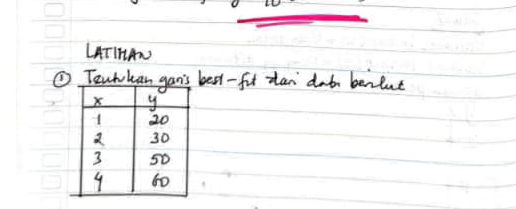 LATIHAN
① Tentukan garis best-fit dari data berikut
x y
1 20
2 30
3 50
4 60